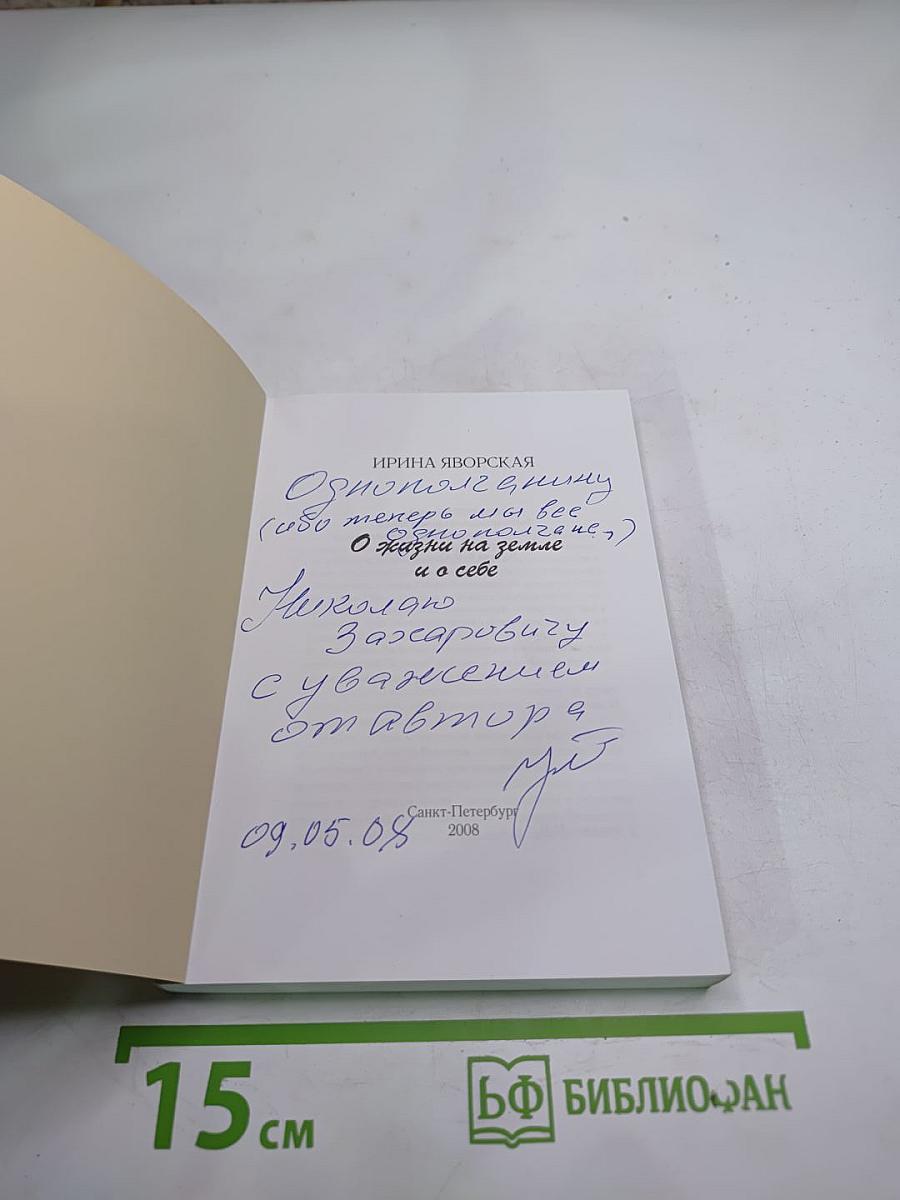 ИРИНА ЯВОРСКАЯ
Однополчанину
(ибо теперь мы все
однополчане,)
О жизни на земле
и о себе
Николаю
Захаровичу
с уважением
от автора
Санкт-Петербург
2008
09.05.08
15 см
БФ БИБЛИОФАН